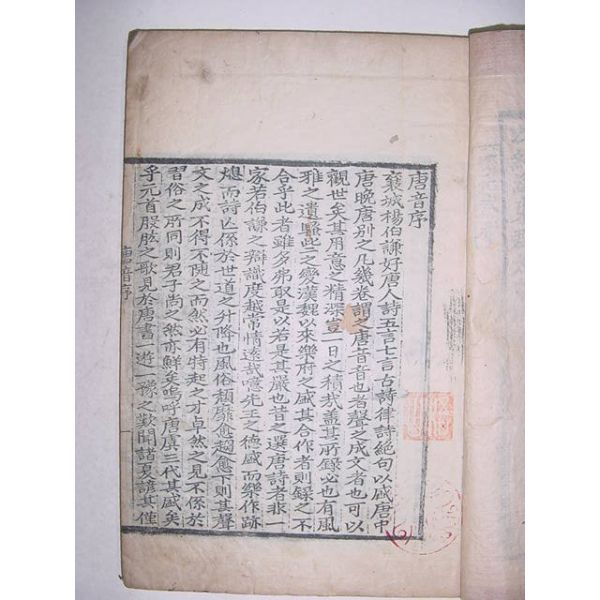 唐音序
襄城楊伯謙好唐人詩五言七言古詩律詩絕句以盛唐中
唐晚唐別之凡幾卷謂之唐音音也者聲之成文者也可以
觀世矣其用意之精深豈一日之積哉盖其所錄必也有風
雅之遺騷些之變漢魏以來樂府之盛其合作者則錄之不
合乎此者雖多弗取是以若是其嚴也昔之選唐詩者非一
家若伯謙之辯識度越常情遠哉噫先王之德盛而樂作跡
熄而詩亡係於世道之升降也風俗頹靡愈趨愈下則其聲
文之成不得不隨之而然必有特起之才卓然之見不係於
習俗之所同則君子尚之然亦鮮矣嗚呼唐虞三代其盛矣
乎元首股肱之歌見於唐書一遊一豫之歎聞諸夏諺其僅
唐音序